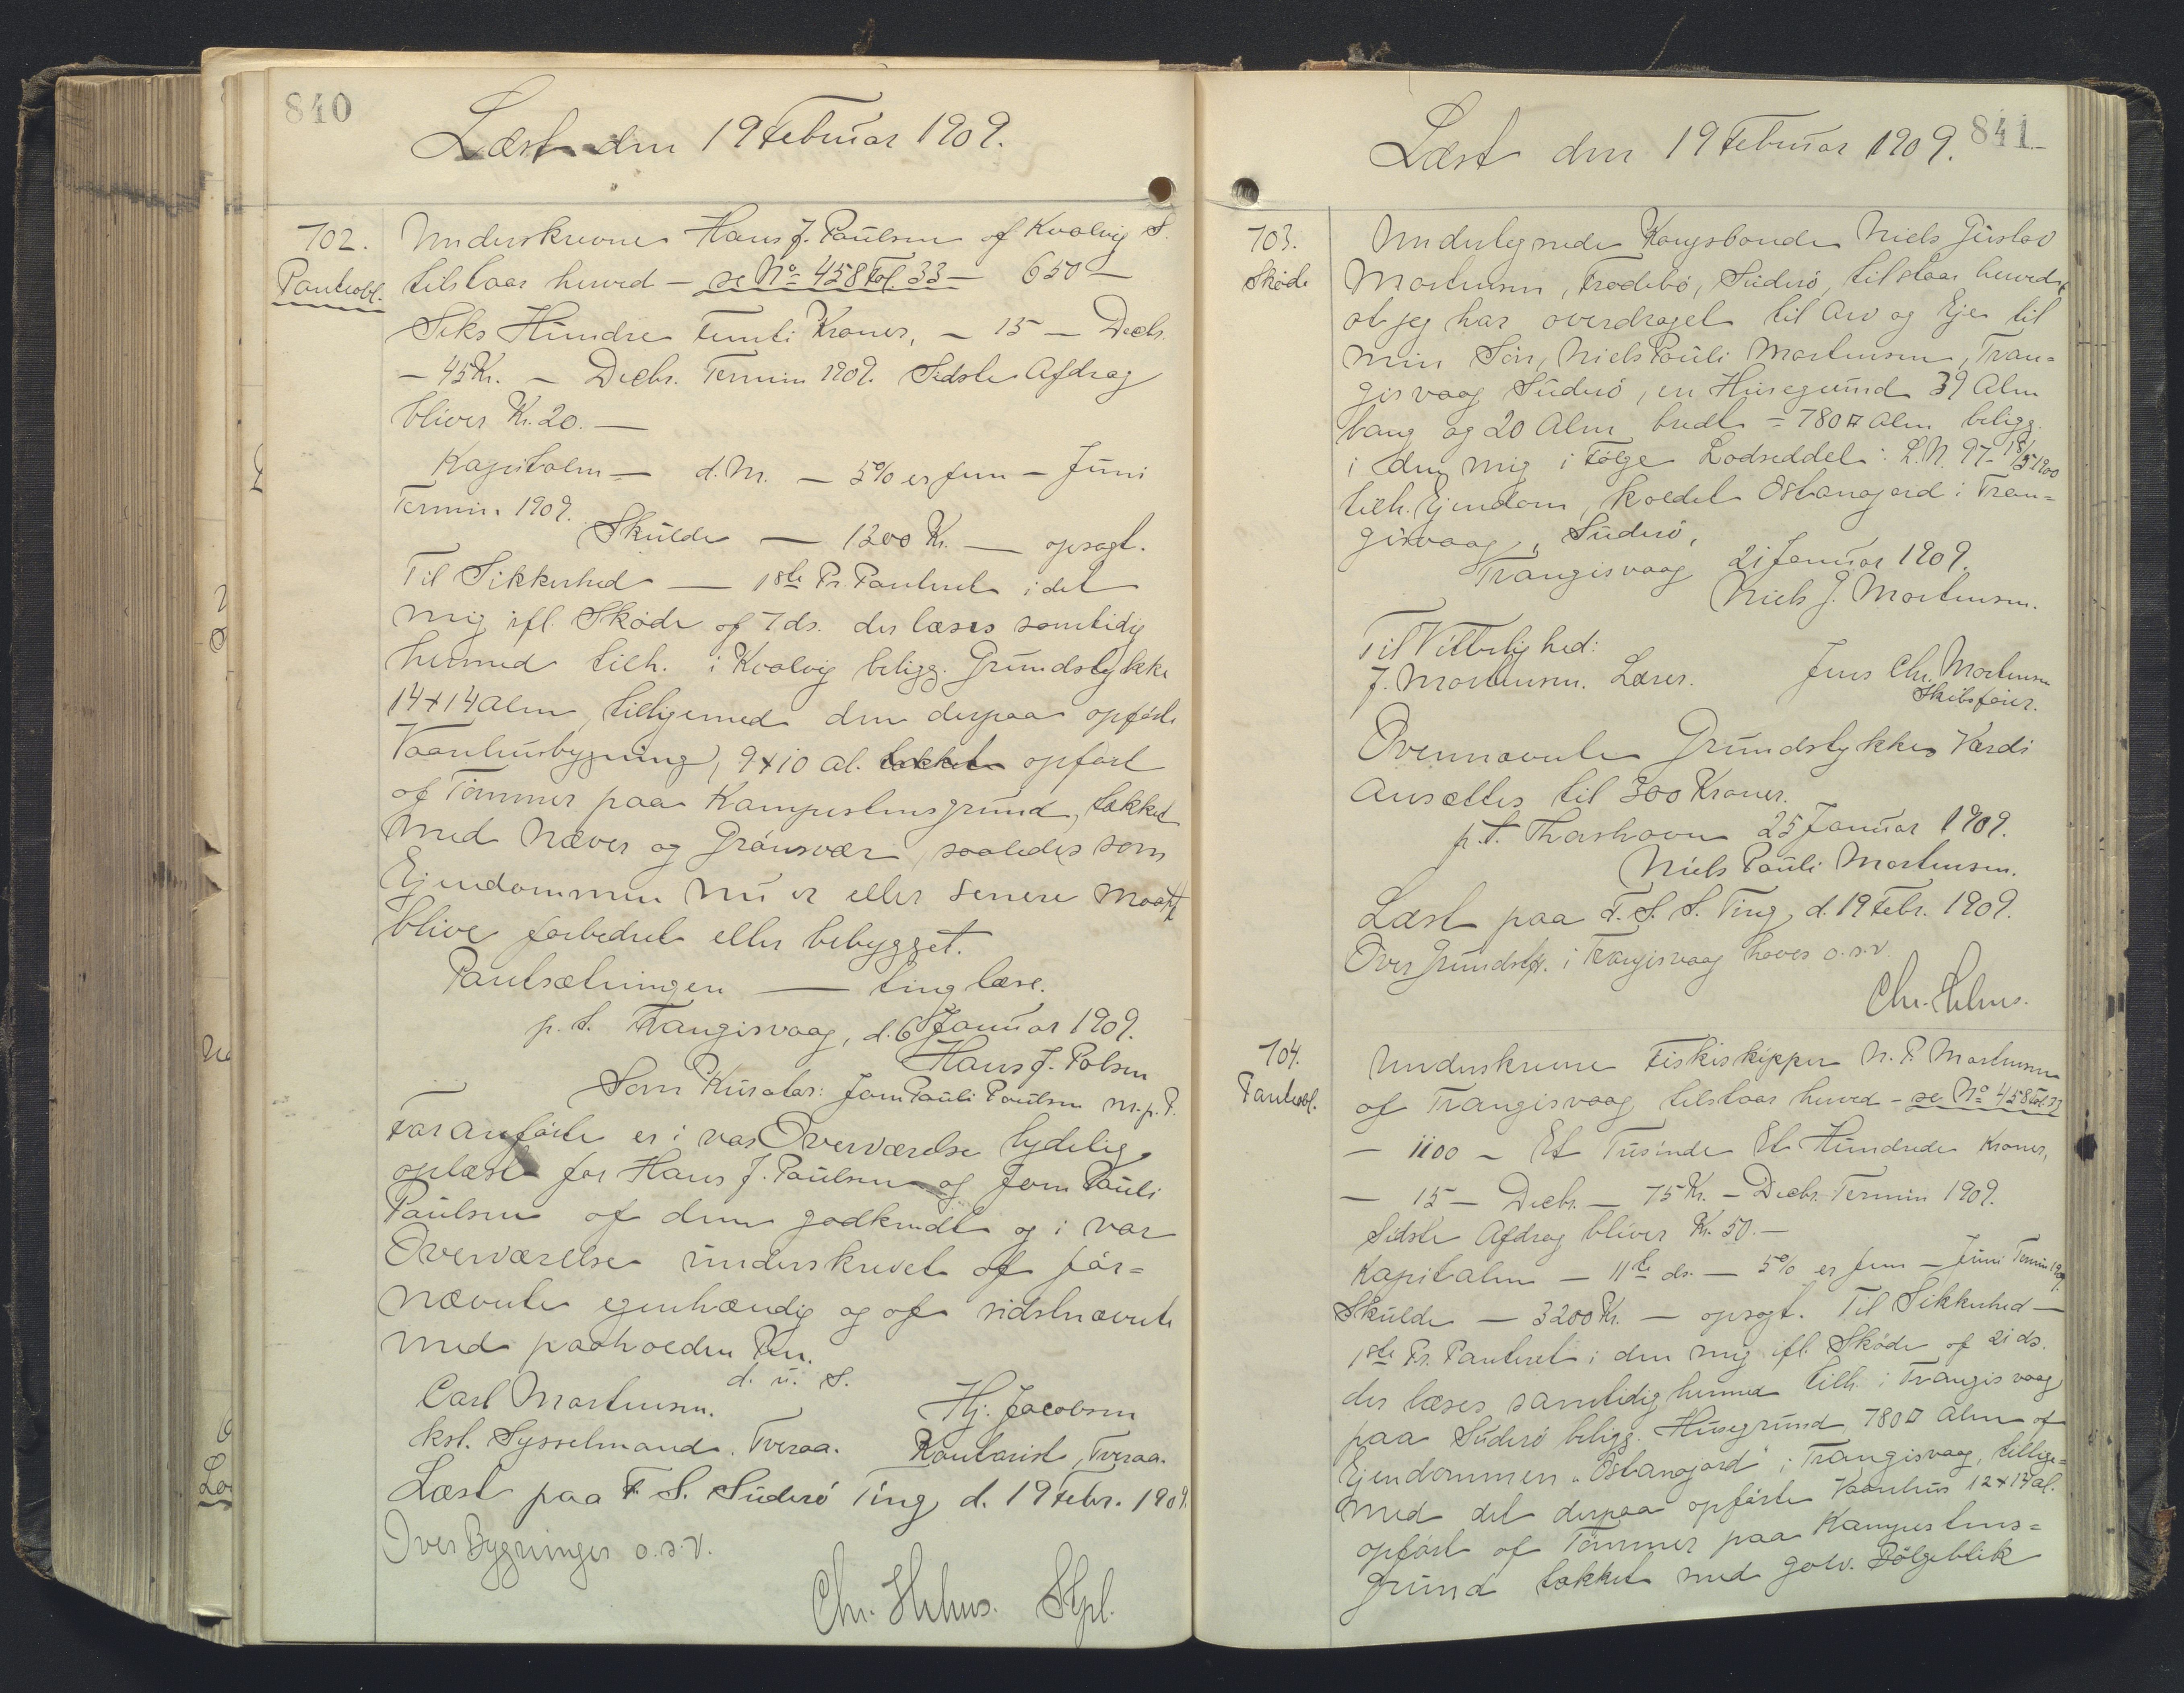 840
Læst den 19 Februar 1909.
702.
Panteobl.
Underskrevne Hans J. Paulsen af Kvalvig S.
tilstaar herved - se No 458 Fol. 33 - 650 -
Seks Hundre Femti Kroner, - 15 - Decbr.
- 45 Kr. - Decbr. Termin 1909. Sidste Afdrag
bliver Kr. 20. -
Kapitalen - d. M. - 5% er fem - Juni
Termin 1909.
Skulde - 1200 Kr. - opsagt.
Til Sikkerhed - 1ste Pr. Panteret i det
mig ifl. Skøde af 7 ds. der læses samtidig
hermed tilh. i Kvalvig beligg. Grundstykke
14 x 14 Alen tilligemed den derpaa opførte
Vaanhusbygning, 9 x 10 al. opført
af Tømmer paa Kampestensgrund, tækket
med Næver og Grønsvær, saaledes som
Ejendommen nu er eller senere maatte
blive forbedret eller bebygget.
Pantsætningen - tinglæse.
p. t. Trangisvaag, d. 6 Januar 1909.
Hans J. Polsen
Som Kurator: Jom Pauli Poulsen m. p. P.
Foranførte er i vor Overværelse tydelig
oplæst for Hans J. Paulsen og Jom Pauli
Paulsen af dem godkendt og i vor
Overværelse underskrevet af før-
nævnte egenhændig og af sidstnævnte
med paaholden Pen.
d. u. S.
Carl Mortensen. Hj. Jacobsen
kst. Sysselmand. Tveraa. Kontorist, Tveraa.
Læst paa F. S. Suderø Ting d. 19 Febr. 1909.
Over Bygninger o. s. v.
Chr. Hehns. Stpl.
841
Læst den 19 Februar 1909.
703.
Skøde
Undertegnede Kongsbonde Niels Gustav
Mortensen, Frodebø, Suderø, tilstaar herved,
at jeg har overdraget til Arv og Eje til
min Søn, Niels Pauli Mortensen, Tran-
gisvaag Suderø, en Husegrund 39 Alen
lang og 20 Alen bredt = 780 □ Alen beligg.
i den mig i Følge Lodseddel: L. N. 97 - 18/5 1900
tilh. Ejendom, kaldet Østanagard i Tran-
gisvaag, Suderø,
Trangisvaag 21 Januar 1909.
Niels G. Mortensen.
Til Vitterlighed:
J. Mortensen. Lærer. Jens Chr. Mortensen
Skibsfører.
Ovennævnte Grundstykkes Værdi
ansættes til 300 Kroner.
p. t. Thorshavn 25 Januar 1909.
Niels Pauli Mortensen.
Læst paa F. S. S. Ting d. 19 Febr. 1909.
Over Grundstk. i Trangisvaag haves o. s. v.
Chr. Hehns.
704.
Panteobl.
Underskrevne Fiskeskipper N. P. Mortensen
af Trangisvaag tilstaar herved - se No 458 Fol. 33
- 1100 - Et Tusinde Et Hundrede Kroner,
- 15 - Decbr. - 75 Kr. - Decbr. Termin 1909.
Sidste Afdrag bliver Kr. 50. -
Kapitalen - 11te ds. - 5% er fem - Juni Termin 1909.
Skulde - 3200 Kr. - opsagt. Til Sikkerhed -
1ste Pr. Panteret i den mig ifl. Skøde af 21 ds.
der læses samtidig hermed tilh. i Trangisvaag
paa Suderø beligg. Husegrund 780 □ Alen af
Ejendommen "Østanagard" i Trangisvaag, tillige-
med det derpaa opførte Vaanhus 12 x 14 al.
opført af Tømmer paa Kampestens-
grund tækket med galv. Bølgeblik